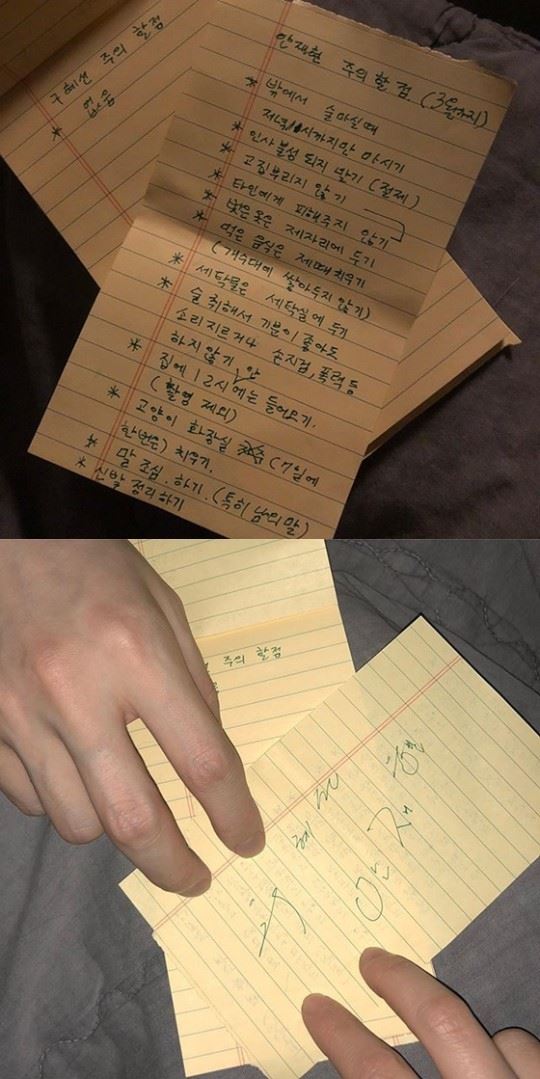 구혜선 주의 할점
* 없음
안재현 주의할 점. (3월까지)
* 밖에서 술마실때
저녁 11시까지만 마시기
* 인사불성 되지 말기 (절제)
* 고집부리지 않기
* 타인에게 피해주지 않기
* 벗은옷은 제자리에 두기
* 먹은 음식은 제때 치우기
(개수대에 쌓아두지 않기)
* 세탁물은 세탁실에 두기
* 술 취해서 기분이 좋아도
소리 지르거나 손찌검, 폭력 등
하지 않기 안
* 집에 12시에는 들어오기.
(촬영 제외)
* 고양이 화장실 (7일에
한번은) 치우기.
* 말 조심. 하기. (특히 남의 말)
* 신발 정리하기
주의 할점
구혜선
안재현